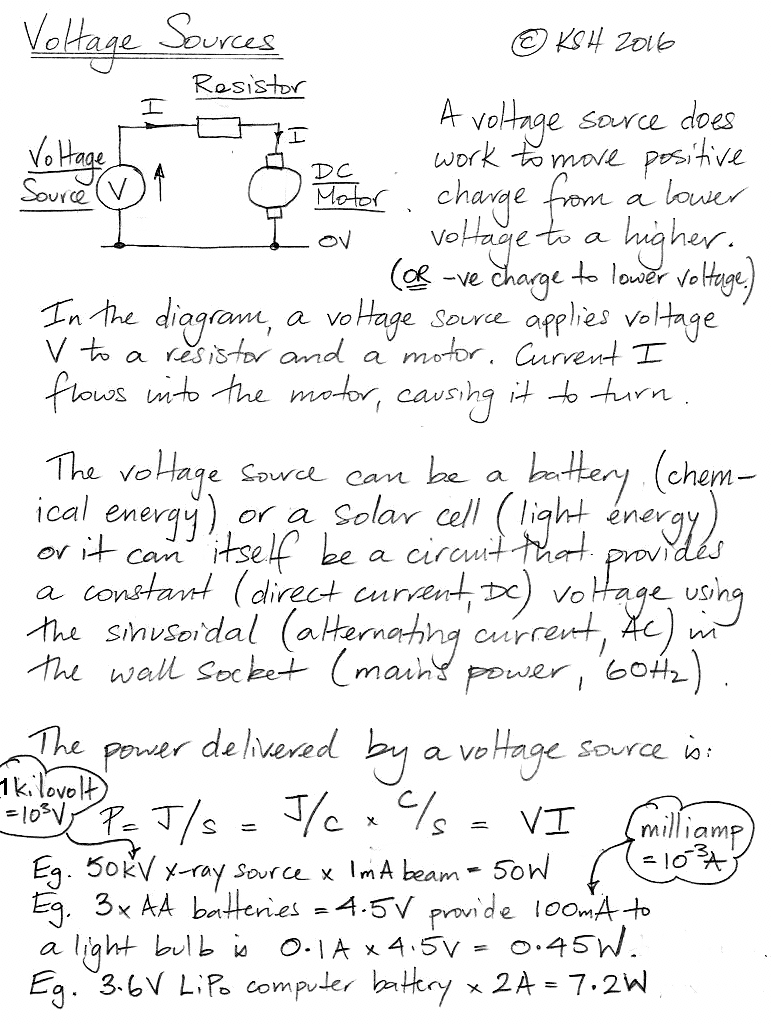 Voltage Sources
© KSH 2016
Resistor
I
I
Voltage
Source
V
DC
Motor
0V
A voltage source does
work to move positive
charge from a lower
voltage to a higher.
(OR -ve charge to lower voltage.)
In the diagram, a voltage source applies voltage
V to a resistor and a motor. Current I
flows into the motor, causing it to turn.
The voltage source can be a battery (chem-
ical energy) or a solar cell (light energy)
or it can itself be a circuit that provides
a constant (direct current, DC) voltage using
the sinusoidal (alternating current, AC) in
the wall socket (mains power, 60Hz).
The power delivered by a voltage source is:
1 kilovolt
= 10³V
P = J/s = J/C × C/s = VI
milliamp
= 10⁻³A
Eg. 50kV x-ray source × 1mA beam = 50W
Eg. 3 × AA batteries = 4.5V provide 100mA to
a light bulb is 0.1A × 4.5V = 0.45W.
Eg. 3.6V LiPo computer battery × 2A = 7.2W